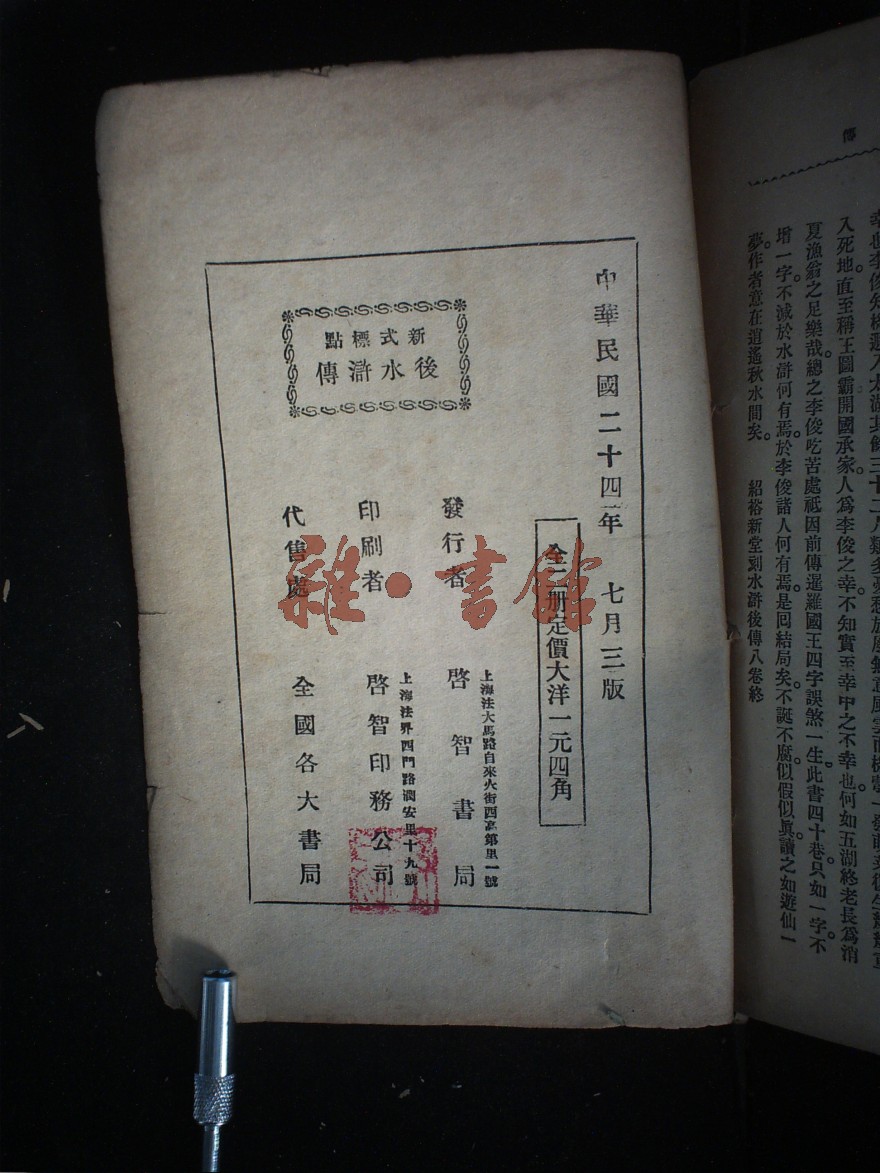 傳
入死地。直至稱王圖霸開國承家。人爲李俊之幸。不知實至幸中之不幸也。何如五湖終老長爲消
夏漁翁之足樂哉。總之李俊吃苦處祗因前傳暹羅國王四字誤煞一生。此書四十卷。只如一字不
增。一字不減。於水滸何有焉。於李俊諸人何有焉。是囘結局矣。不誕不腐。似假似眞。讀之如遊仙一
夢。作者意在逍遙秋水間矣。 紹裕新堂刻水滸後傳八卷終
中華民國二十四年 七月三版
全二册定價大洋一元四角
發行者
上海法大馬路自來火街西高第里一號
啓智書局
印刷者
上海法界西門路潤安里十九號
啓智印務公司
代售處
全國各大書局
新式標點
後水滸傳
雜·書館